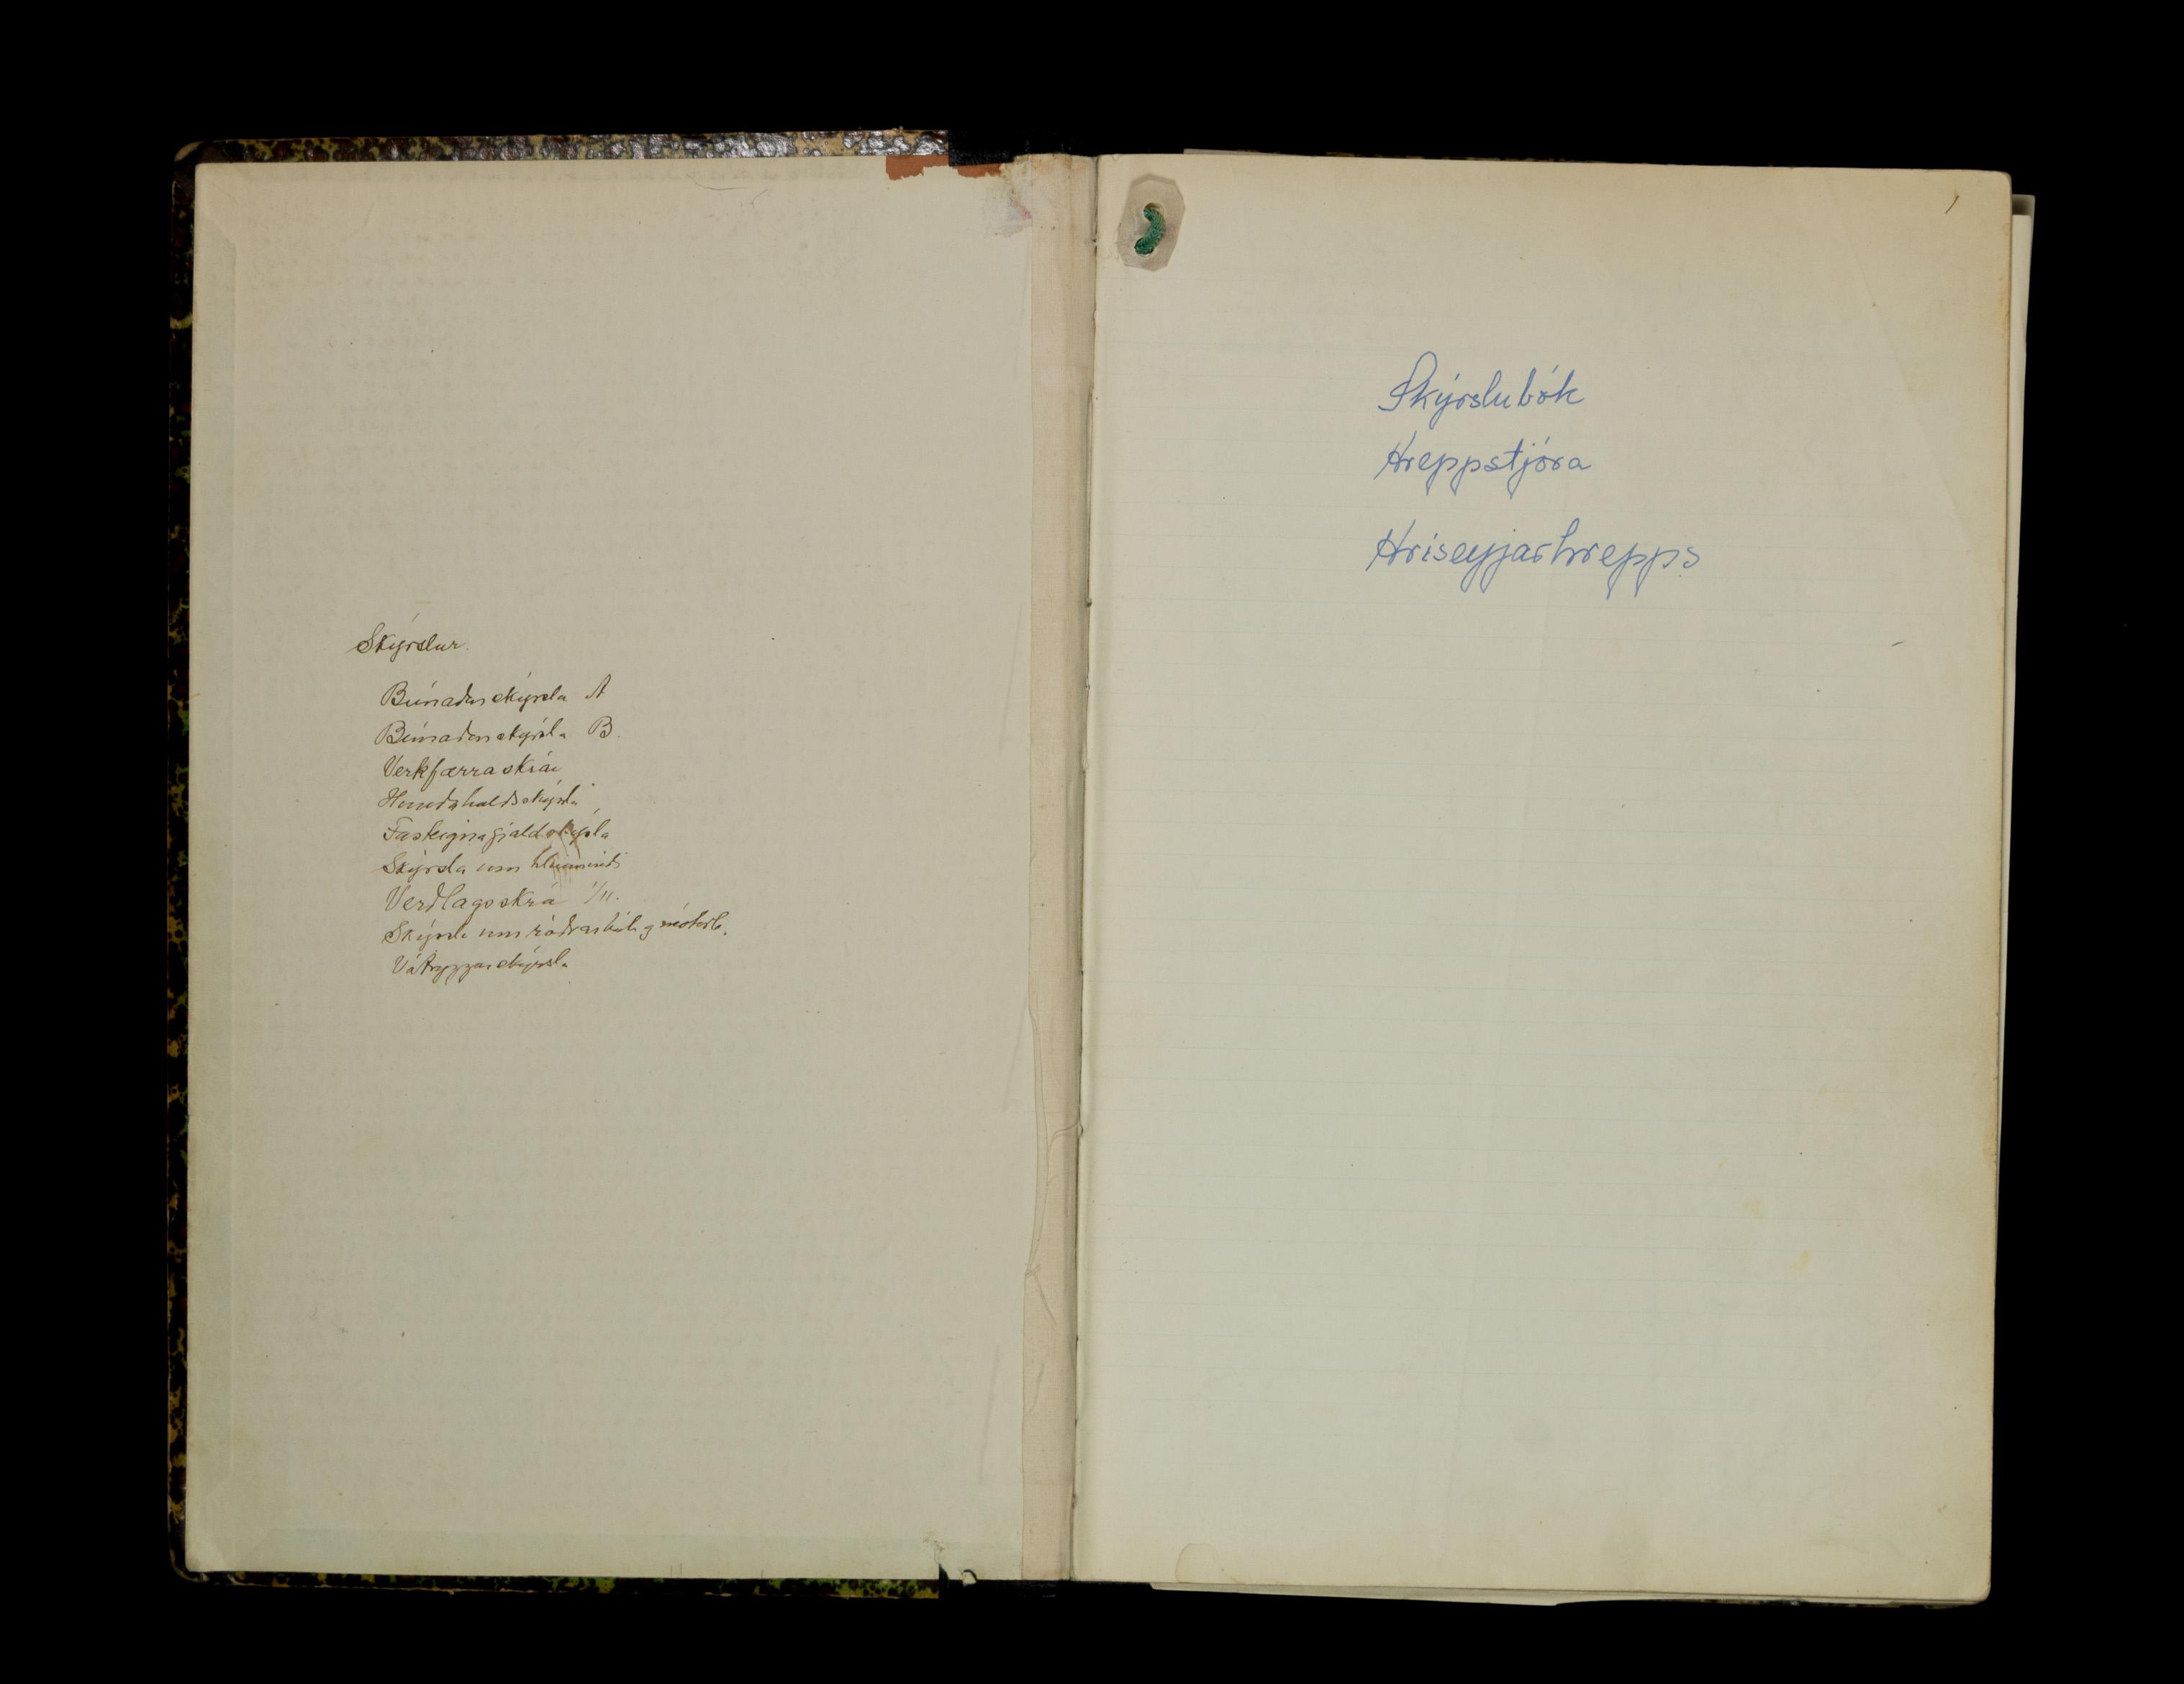 Skýrslur.
Búnaðarskýrsla A
Búnaðarskýrsla B.
Verkfærraskrá
Hundahaldsskýrsla
Fasteignagjaldskýsla
Skýrsla um hlunnindi
Verðlagsskrá 1/11.
Skýrsla um róðrarbáta og mótorb.
Vátryggarskýrsla
1
Skýrslubók
Hreppstjóra
Hríseyjarhrepps